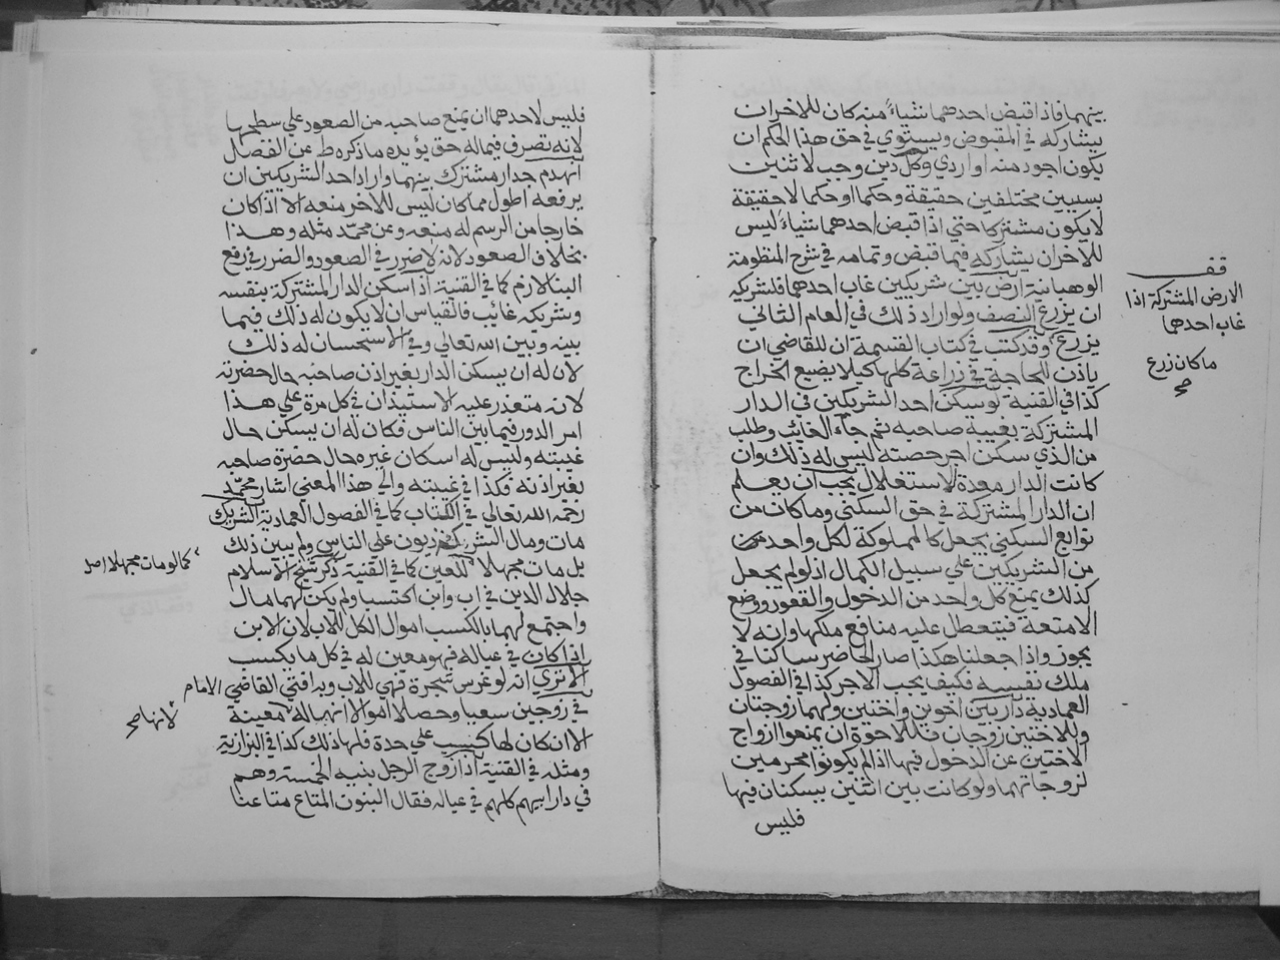 بينهما فاذا قبض احدهما شياء منه كان للاخران
يشاركه في المقبوض ويستوي في حق هذا الحكم ان
يكون اجود منه او اردي وكل دين وجب لاثنين
بسببين مختلفين حقيقة وحكما او حكما لا حقيقة
لا يكون مشتركا حتي اذا قبض احدهما شياء ليس
للاخران يشاركه فيما قبض وتمامه في شرح المنظومة
الوهبانية ارض بين شريكين غاب احدهما فلشريكه
ان يزرع النصف ولو اراد ذلك في العام الثاني
يزرع وقد كتب في كتاب القسمة ان للقاضي ان
ياذن للحاجة في زراعة كلها كيلا يضيع الخراج
كذا في القنية لو سكن احد الشريكين في الدار
المشتركة بغيبة صاحبه ثم جاء الغائب وطلب
من الذي سكن اجر حصته اليس له ذلك وان
كانت الدار معدة لاستغلال يجب ان يعلم
ان الدار المشتركة في حق السكني وما كان من
توابع السكني يجعل كالمملوكة لكل واحد
من الشريكين علي سبيل الكمال اذ لو لم يجعل
كذلك يمنع كل واحد من الدخول والقعود ووضع
الامتعة فيتعطل عليه منافع ملكها وانه لا
يجوز واذا جعلنا هكذا صار الحاضر ساكنا في
ملك نفسه فكيف يجب الاجر كذا في الفصول
العمادية دار بين اخوين واختين ولهما زوجتان
وللاختين زوجان فللاخوة ان يمنعوا ازواج
الاختين عن الدخول فيها اذا لم يكونوا محرمين
لزوجاتهما ولو كانت بين اثنين يسكنان فيها
فليس
قف
الارض المشتركة اذا
غاب احدها
ما كان زرع
صح
فليس لاحدهما ان يمنع صاحبه من الصعود علي سطحها
لانه تصرف فيما له حق يؤيده ما ذكره ط عن الفضل
انهدم جدار مشترك بينهما واراد احد الشريكين ان
يرفعه اطول مما كان ليس للاخر منعه الا اذا كان
خارجا من الرسم له منعه وعن محمد مثله وهذا
بخلاف الصعود لانه لا ضرر في الصعود والضرر في رفع
البنا لازم كما في القنية اذا سكن الدار المشتركة بنفسه
وشريكه غائب فالقياس ان لا يكون له ذلك فيما
بينه وبين الله تعالي وفي الاستحسان له ذلك
لان له ان يسكن الدار بغير اذن صاحبه حال حضرته
لانه متعذر عليه الاستيذان في كل مرة علي هذا
امر الدور فيما بين الناس فكان له ان يسكن حال
غيبته وليس له اسكان غيره حال حضرة صاحبه
بغير اذنه فكذا في غيبته والي هذا المعني اشار محمد
رحمه الله تعالي في الكتاب كما في الفصول العمادية الشريك
مات ومال الشريك ديون علي الناس ولم يبين ذلك
بل مات مجهلا للعين كما في القنية ذكر شيخ الاسلام
جلال الدين في اب وابن اكتسبا ولم يكن لهما مال
واجتمع لهما بالكسب اموال الكل للاب لان الابن
اذا كان في عياله فهو معين له في كل ما يكسب
الا تري انه لو غرس شجرة فهي للاب وبه افتي القاضي الامام
في زوجين سعيا وحصلا اموالا انها له معينة
الا ان كان لها كسب علي حدة فلها ذلك كذا في البزازية
ومثله في القنية اذا زوج الرجل بنيه الخمسة وهم
في دار ابيهم كلهم في عياله فقال البنون المتاع متاعنا
كما لو مات مجهلا
لانها صح